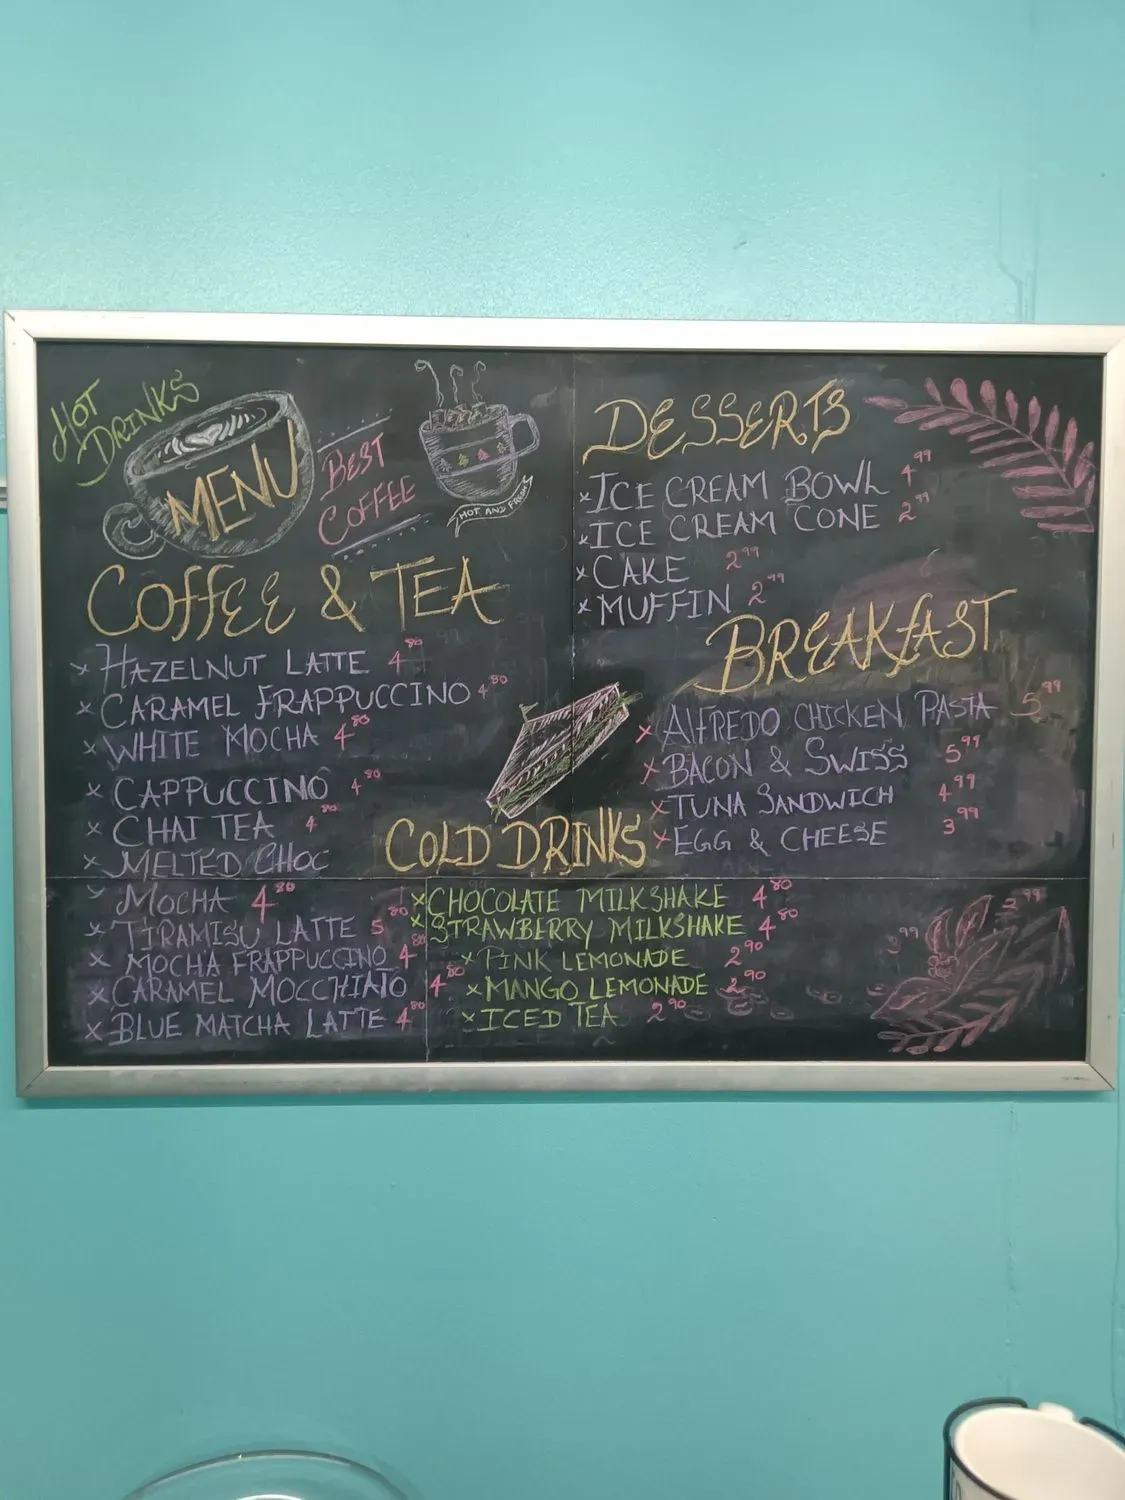 HOT
DRINKS
MENU
BEST
COFFEE
HOT AND FRESH
COFFEE & TEA
x HAZELNUT LATTE 4.80
x CARAMEL FRAPPUCCINO 4.80
x WHITE MOCHA 4.80
x CAPPUCCINO 4.80
x CHAI TEA 4.80
x MELTED CHOC
MOCHA 4.80
x TIRAMISU LATTE 5.80
x MOCHA FRAPPUCCINO 4.80
x CARAMEL MOCCHIATO 4.80
x BLUE MATCHA LATTE 4.80
DESSERTS
x ICE CREAM BOWL 4.99
x ICE CREAM CONE 2.99
x CAKE 2.99
x MUFFIN 2.99
BREAKFAST
x ALFREDO CHICKEN PASTA 5.99
x BACON & SWISS 5.99
x TUNA SANDWICH 4.99
x EGG & CHEESE 3.99
COLD DRINKS
x CHOCOLATE MILKSHAKE 4.80
x STRAWBERRY MILKSHAKE 4.80
x PINK LEMONADE 2.90
x MANGO LEMONADE 2.90
x ICED TEA 2.90